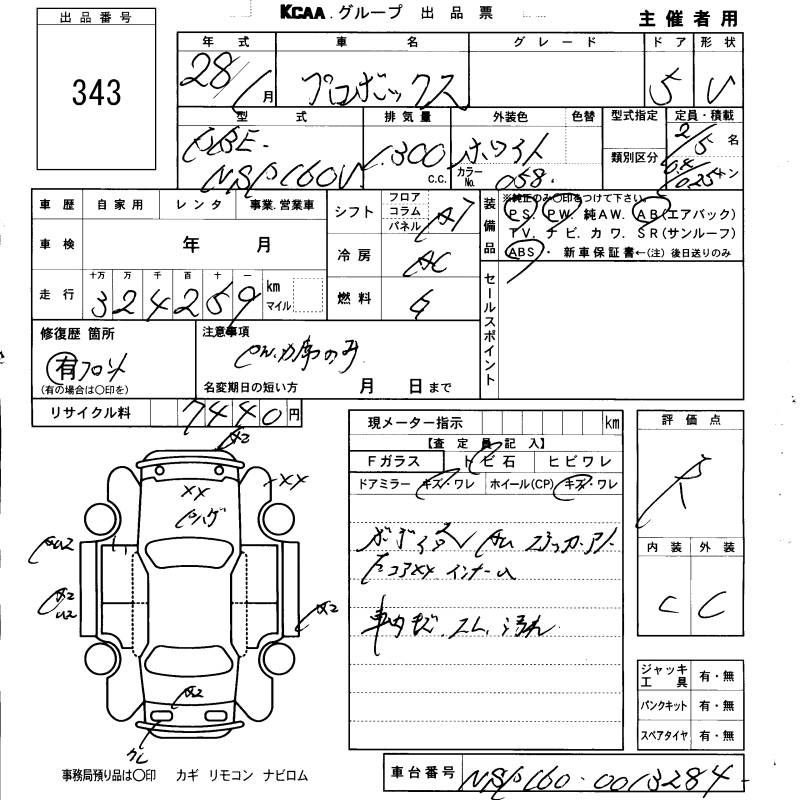 KCAA.グループ 出品票
主催者用
出品番号
343
年式 車名 グレード ドア 形状
28/1月 プロボックス 5 V
型式 排気量 外装色 色替 型式指定 定員・積載
類別区分
DBE-
NSP160V 1300 c.c. ホワイト カラーNo. 058
2/5 名
0.4/0.25トン
車歴 自家用 レンタ 事業.営業車
シフト フロア コラム パネル AT
装備品
※純正のみ〇印をつけて下さい。
PS. PW. 純AW. AB(エアバック)
TV. ナビ. カワ. SR(サンルーフ)
ABS. ・ 新車保証書←(注) 後日送りのみ
車検 年 月
冷房 AC
走行 十万 万 千 百 十 一
324259 km マイル
燃料 G
セールスポイント
修復歴 箇所
有 フロント
(有の場合は〇印を)
注意事項
PW.力席のみ
名変期日の短い方 月 日まで
リサイクル料 7440円
現メーター指示 km
【査定員記入】
Fガラス トビ石 ヒビワレ
ドアミラー キズ・ワレ ホイール(CP) キズ・ワレ
評価点
R
内装 外装
C C
A2
XX
XX
A2
A2
A2
事務局預り品は〇印 カギ リモコン ナビロム
ジャッキ工具 有・無
パンクキット 有・無
スペアタイヤ 有・無
車台番号 NSP160-0013284